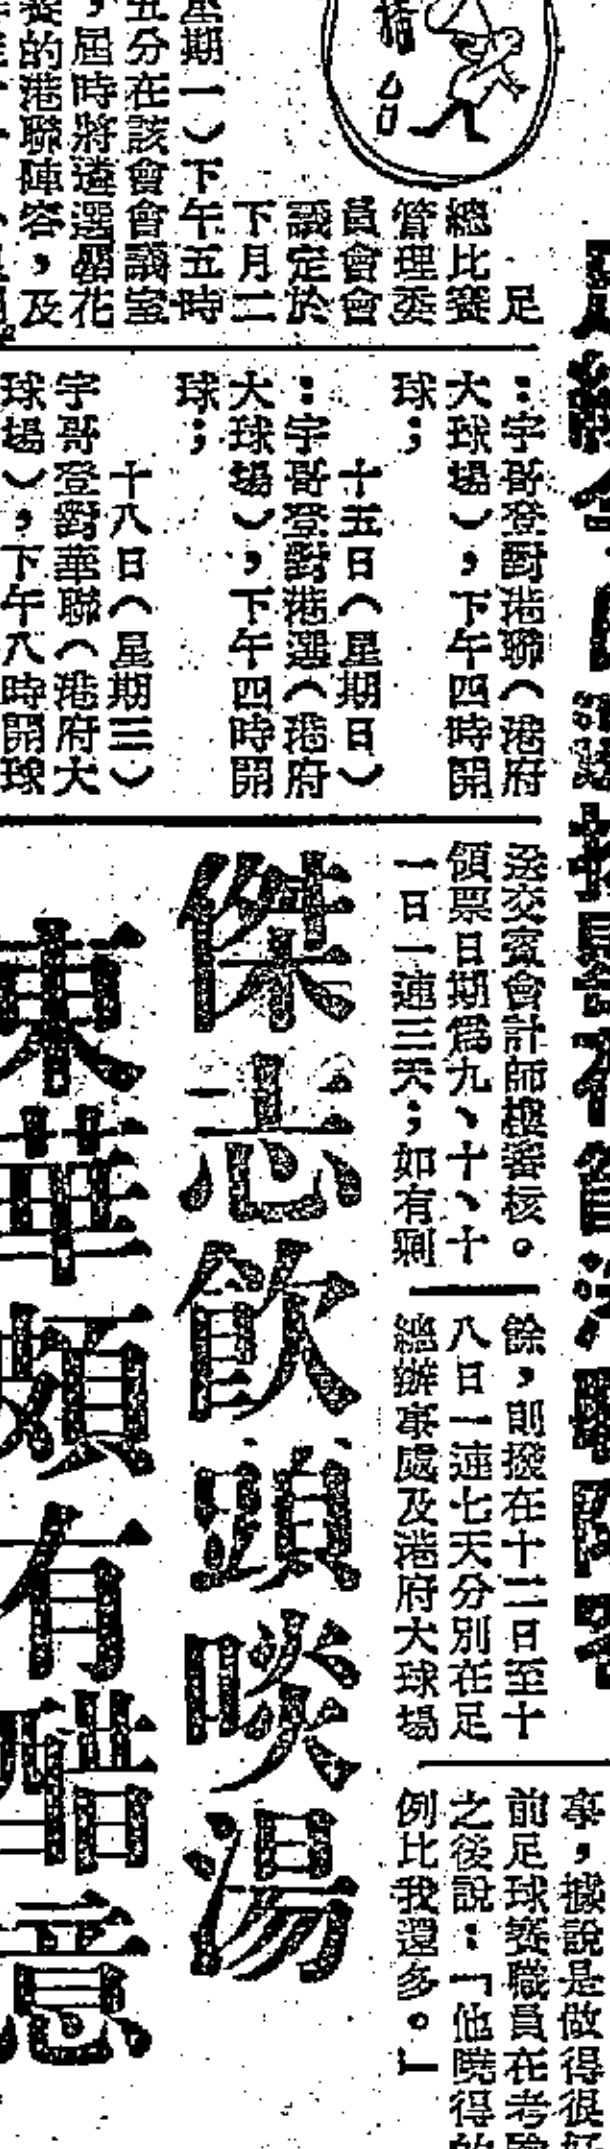 足
總比賽
管理委
員會會
議定於
下月二
星期一）下午五時
五分在該會會議室
，屆時將遴選
的港聯陣容，及
：宇哥登對港聯（港府
大球場），下午四時開
球；
十五日（星期日）
：宇哥登對港選（港府
大球場），下午四時開
球；
十八日（星期三）
宇哥登對華聯（港府大
球場），下午八時開球
送交賓會計師樓審核。
領票日期爲九、十、十
一日一連三天；如有剩
餘，則撥在十二日至十
八日一連七天分別在足
總辦事處及港府大球場
傑志飲頭啖湯
東華頗有醋意
事，據說是做得很好
前足球賽職員在考
之後說：「他曉得的
例比我還多。」